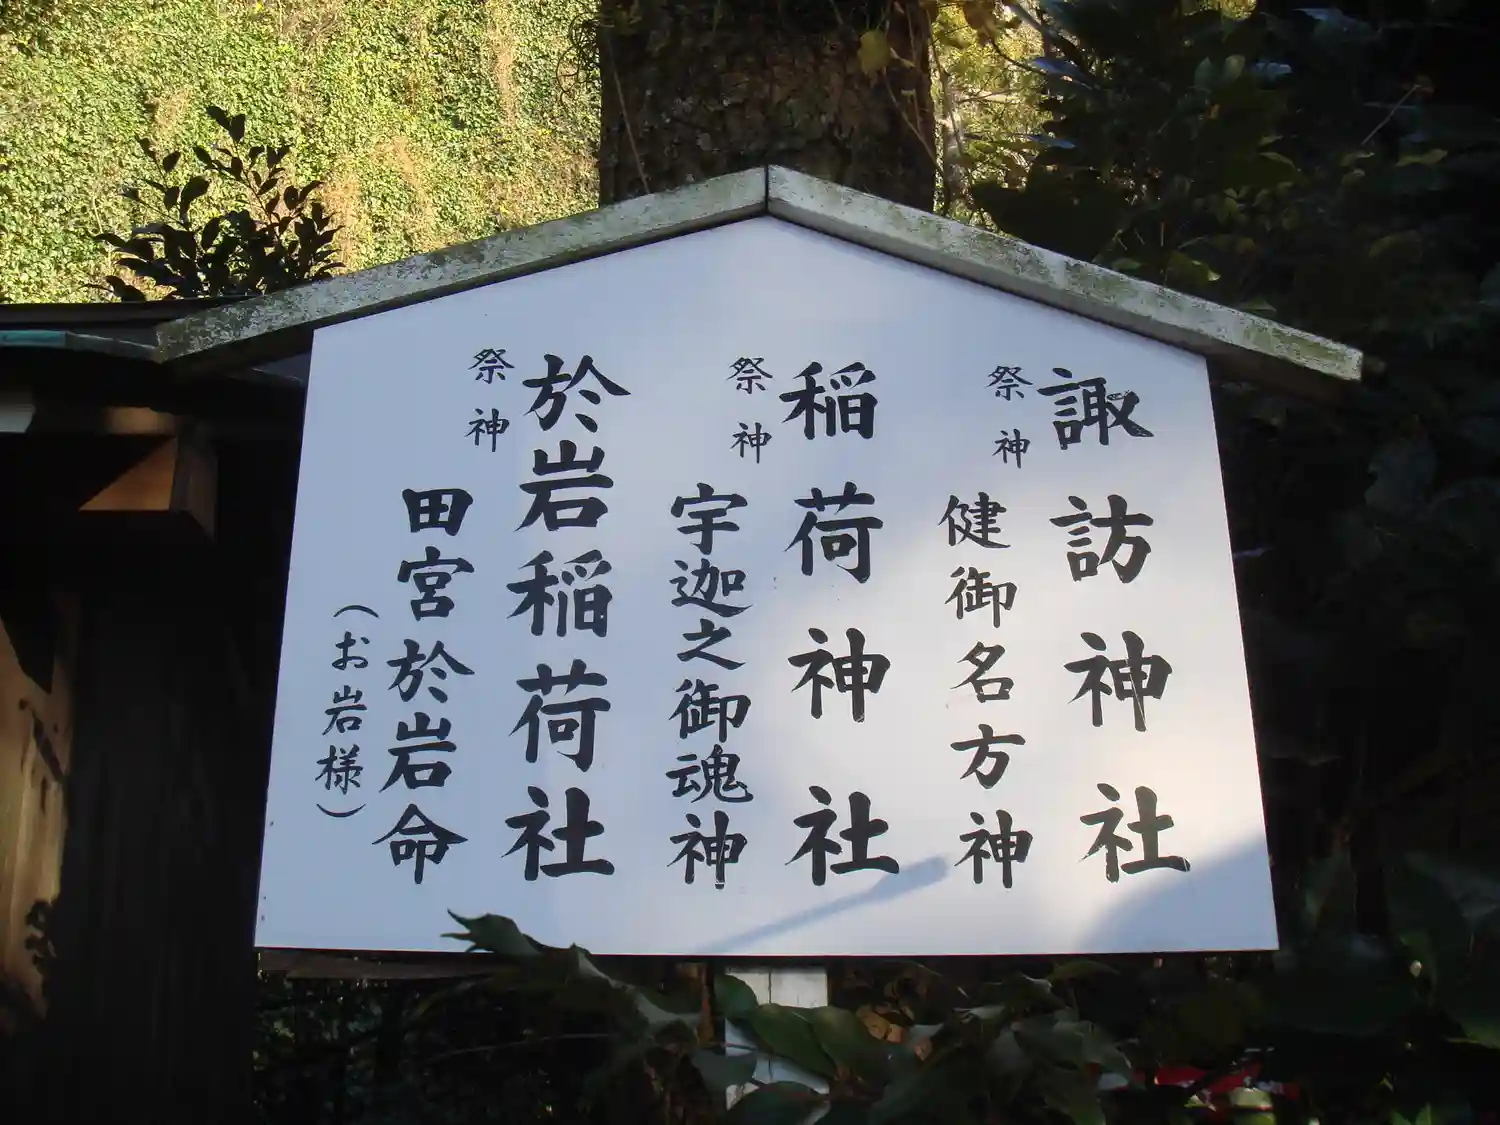 諏訪神社
祭神
健御名方神
稲荷神社
祭神
宇迦之御魂神
於岩稲荷社
祭神
田宮於岩命
（お岩様）